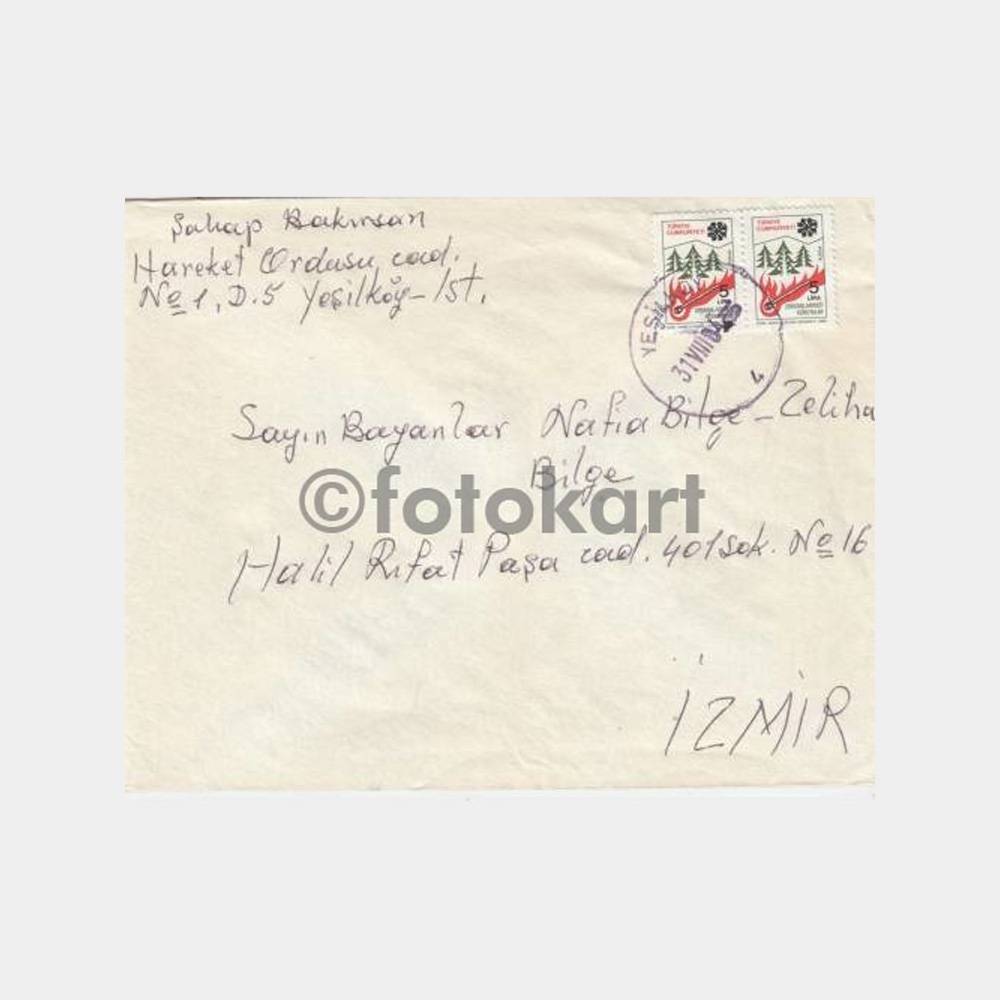 Şahap Bakırsan
Hareket Ordusu cad.
No 1, D.5 Yeşilköy-İst.
TÜRKİYE
CUMHURİYETİ
5
LİRA
TÜRKİYE
CUMHURİYETİ
5
LİRA
ORMANLARIMIZI
KORUYALIM
31 VIII
4
Sayın Bayanlar Nafia Bilge - Zeliha
Bilge
©fotokart
Halil Rıfat Paşa cad. 401 sok. No 16
İZMİR